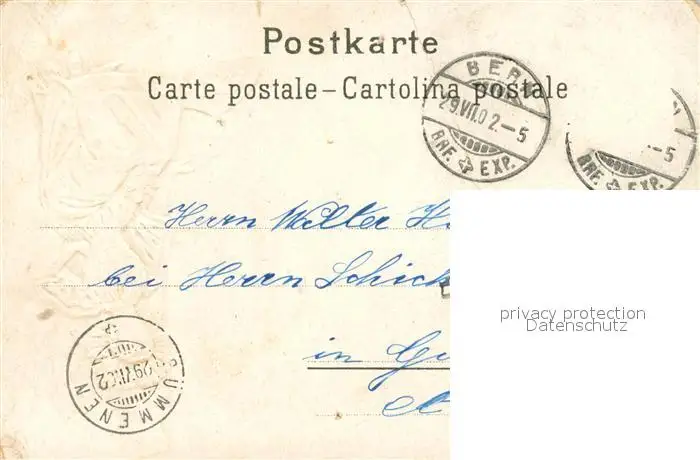 Postkarte
Carte postale – Cartolina postale
BERN
29.VII.02.–5
BRF. EXP.
–5
BRF. EXP.
Herrn Walter
bei Herrn Schick
in
privacy protection
Datenschutz
29.VII.02
ÜMMENEN